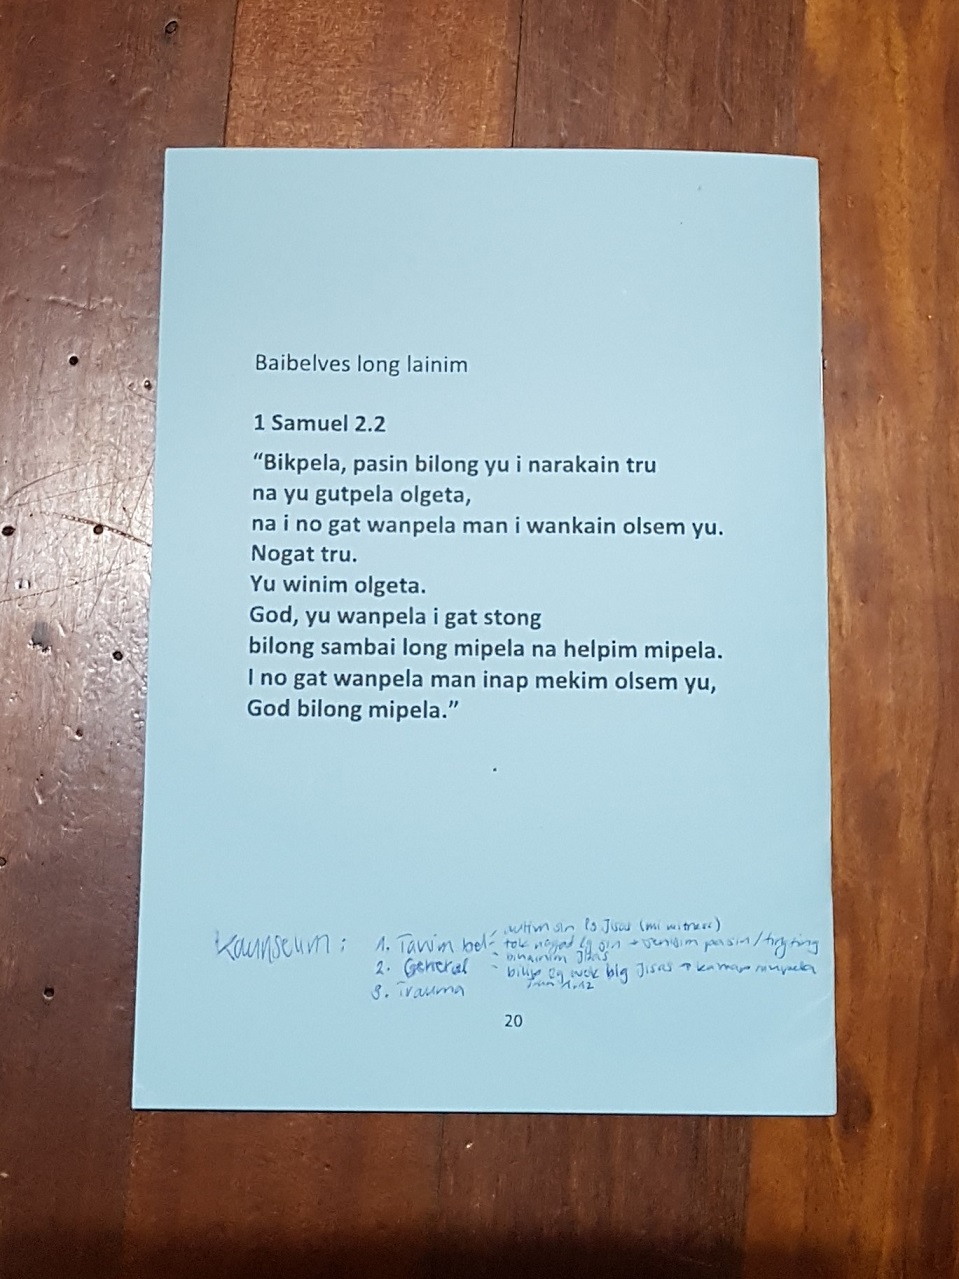 Baibelves long lainim
1 Samuel 2.2
“Bikpela, pasin bilong yu i narakain tru
na yu gutpela olgeta,
na i no gat wanpela man i wankain olsem yu.
Nogat tru.
Yu winim olgeta.
God, yu wanpela i gat stong
bilong sambai long mipela na helpim mipela.
I no gat wanpela man inap mekim olsem yu,
God bilong mipela.”
Kaunselim : 1. Tanim bel
sin Jisas (mi
tok lg sin → senisim pasin/tingting
- bihainim Jisas
2. General
- bilip lg wok blg Jisas → kamap
3. Trauma
1.12
20